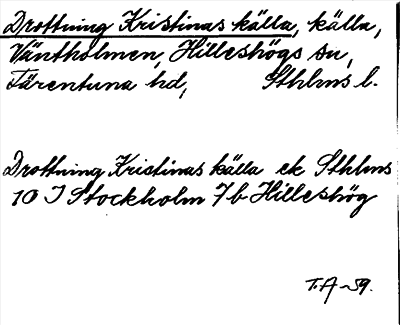 Drottning Kristinas källa, källa,
Väntholmen, Hilleshögs sn,
Färentuna hd, Sthlms l.
Drottning Kristinas källa ek Sthlms
10 I Stockholm 7 b Hilleshög
T.A-59.